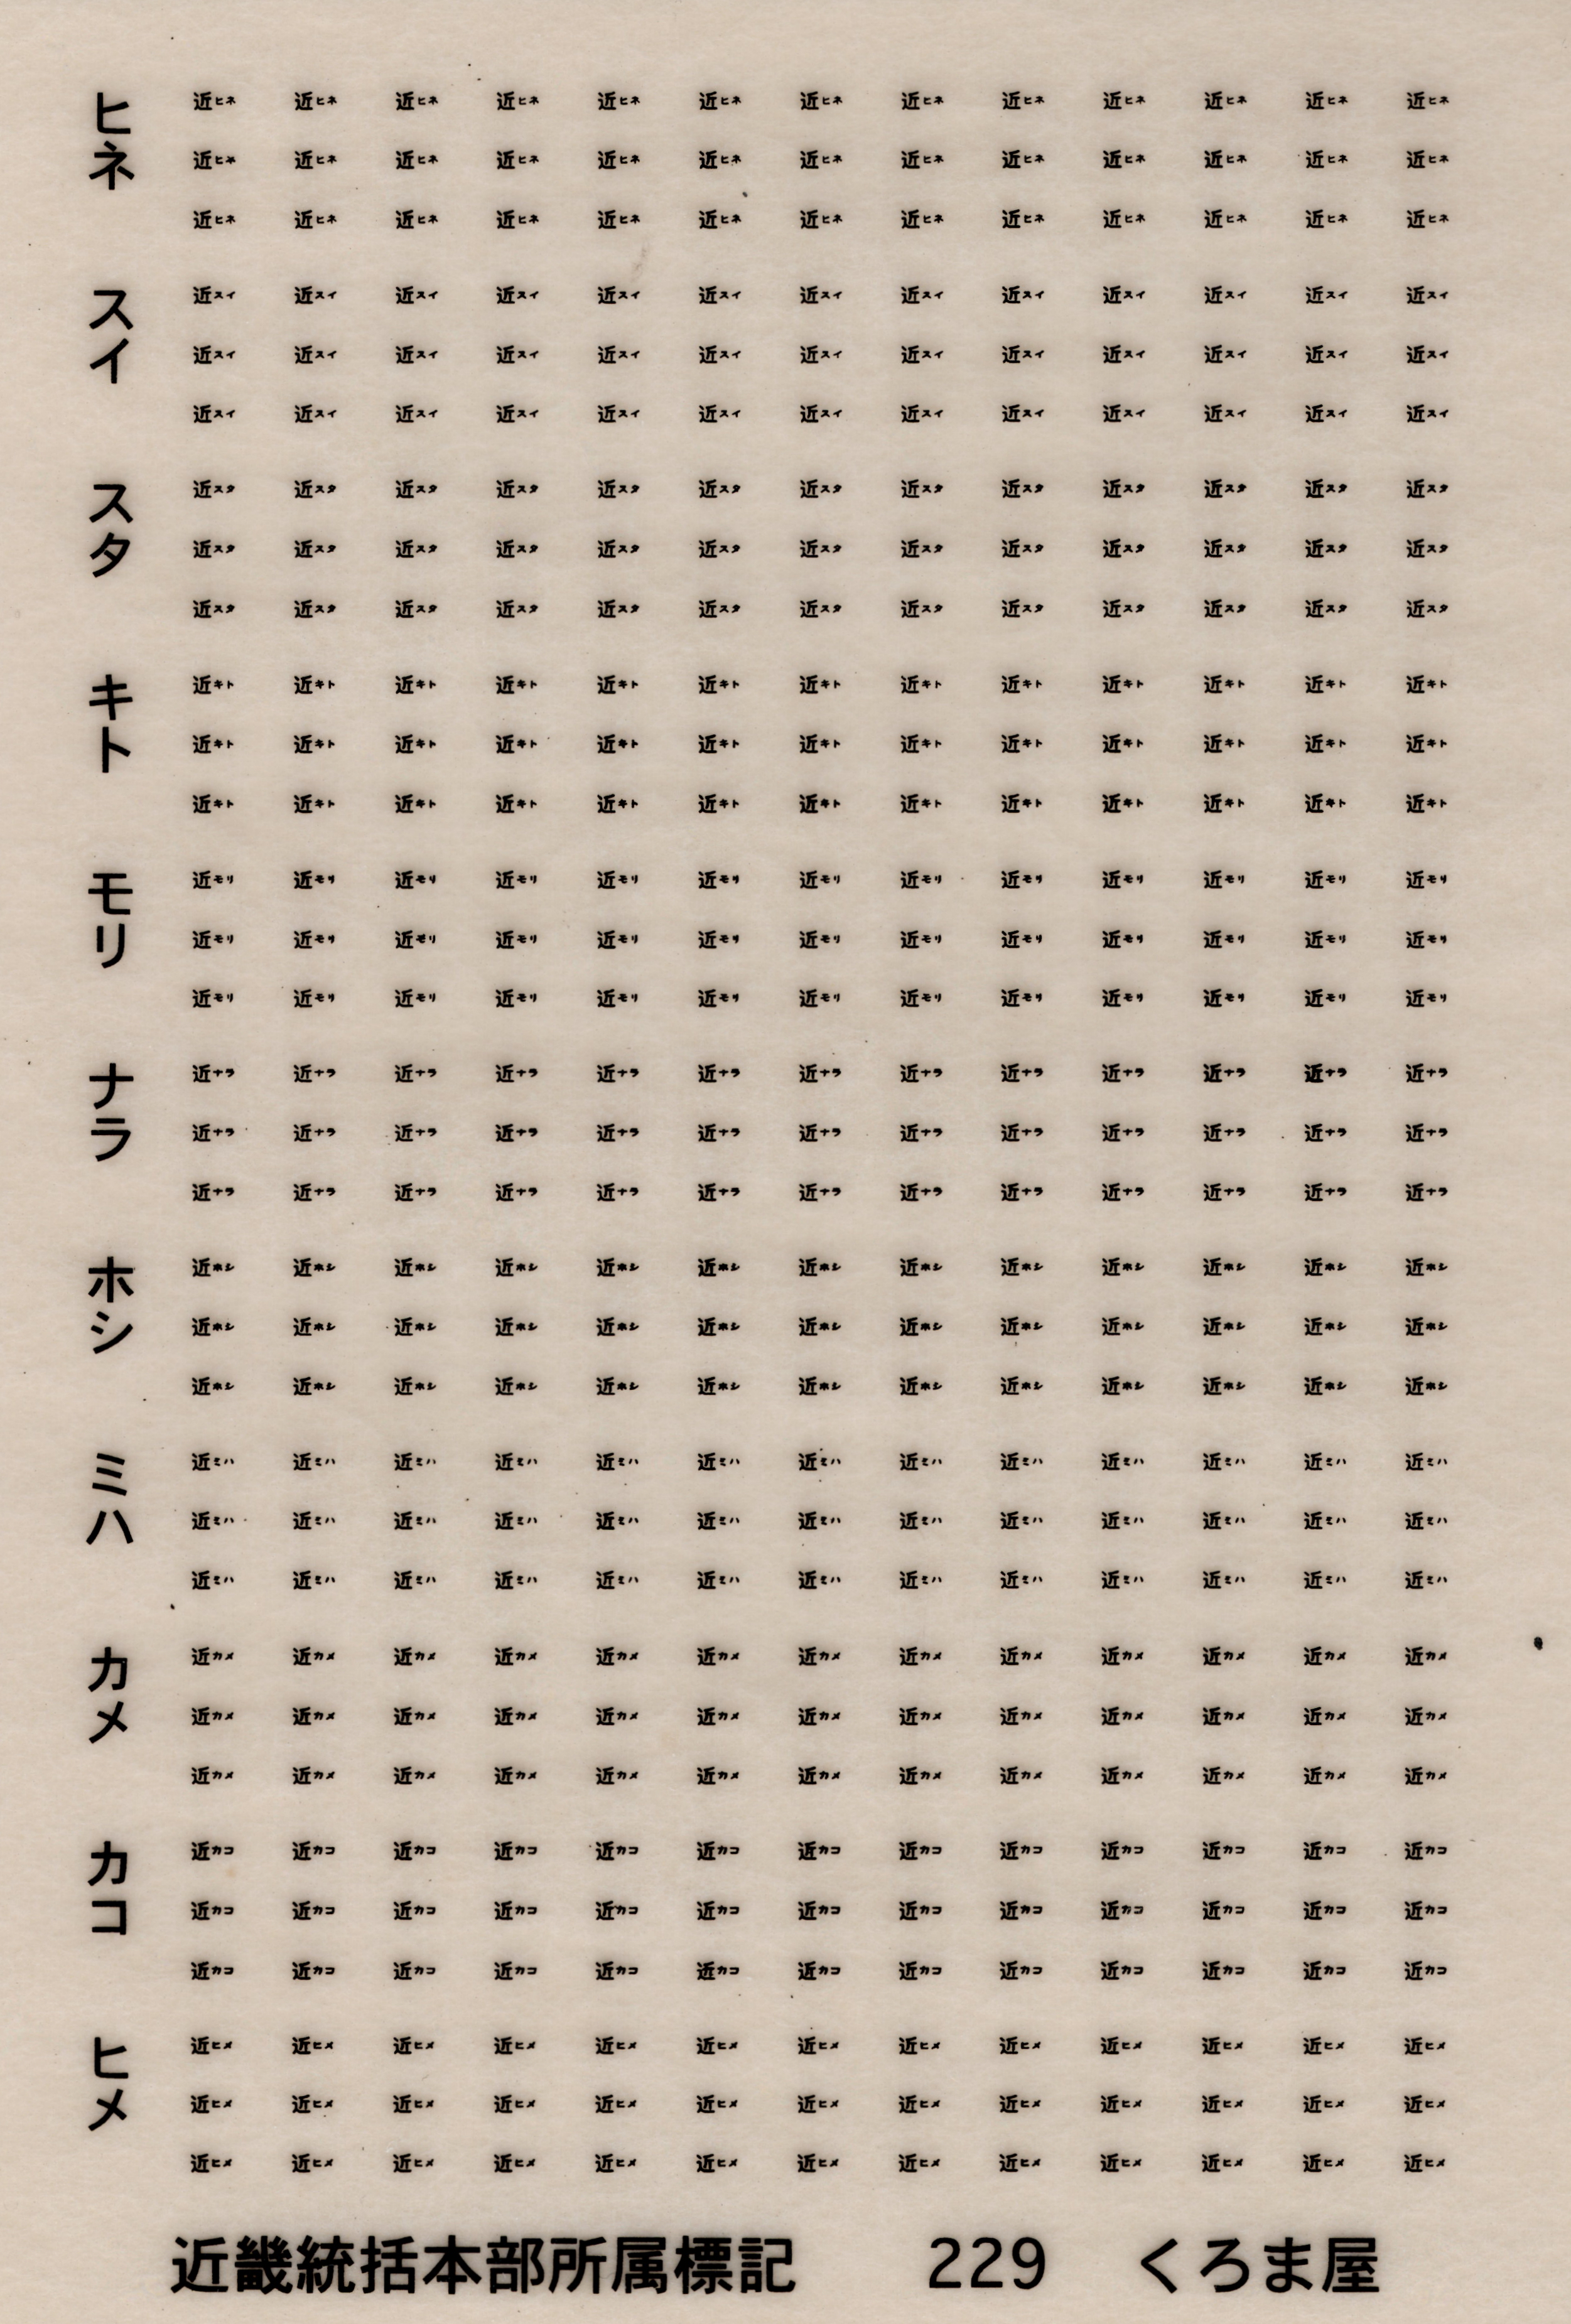 ヒネ
近ヒネ 近ヒネ 近ヒネ 近ヒネ 近ヒネ 近ヒネ 近ヒネ 近ヒネ 近ヒネ 近ヒネ 近ヒネ 近ヒネ 近ヒネ
近ヒネ 近ヒネ 近ヒネ 近ヒネ 近ヒネ 近ヒネ 近ヒネ 近ヒネ 近ヒネ 近ヒネ 近ヒネ 近ヒネ 近ヒネ
近ヒネ 近ヒネ 近ヒネ 近ヒネ 近ヒネ 近ヒネ 近ヒネ 近ヒネ 近ヒネ 近ヒネ 近ヒネ 近ヒネ 近ヒネ
スイ
近スイ 近スイ 近スイ 近スイ 近スイ 近スイ 近スイ 近スイ 近スイ 近スイ 近スイ 近スイ 近スイ
近スイ 近スイ 近スイ 近スイ 近スイ 近スイ 近スイ 近スイ 近スイ 近スイ 近スイ 近スイ 近スイ
近スイ 近スイ 近スイ 近スイ 近スイ 近スイ 近スイ 近スイ 近スイ 近スイ 近スイ 近スイ 近スイ
スタ
近スタ 近スタ 近スタ 近スタ 近スタ 近スタ 近スタ 近スタ 近スタ 近スタ 近スタ 近スタ 近スタ
近スタ 近スタ 近スタ 近スタ 近スタ 近スタ 近スタ 近スタ 近スタ 近スタ 近スタ 近スタ 近スタ
近スタ 近スタ 近スタ 近スタ 近スタ 近スタ 近スタ 近スタ 近スタ 近スタ 近スタ 近スタ 近スタ
キト
近キト 近キト 近キト 近キト 近キト 近キト 近キト 近キト 近キト 近キト 近キト 近キト 近キト
近キト 近キト 近キト 近キト 近キト 近キト 近キト 近キト 近キト 近キト 近キト 近キト 近キト
近キト 近キト 近キト 近キト 近キト 近キト 近キト 近キト 近キト 近キト 近キト 近キト 近キト
モリ
近モリ 近モリ 近モリ 近モリ 近モリ 近モリ 近モリ 近モリ 近モリ 近モリ 近モリ 近モリ 近モリ
近モリ 近モリ 近モリ 近モリ 近モリ 近モリ 近モリ 近モリ 近モリ 近モリ 近モリ 近モリ 近モリ
近モリ 近モリ 近モリ 近モリ 近モリ 近モリ 近モリ 近モリ 近モリ 近モリ 近モリ 近モリ 近モリ
ナラ
近ナラ 近ナラ 近ナラ 近ナラ 近ナラ 近ナラ 近ナラ 近ナラ 近ナラ 近ナラ 近ナラ 近ナラ 近ナラ
近ナラ 近ナラ 近ナラ 近ナラ 近ナラ 近ナラ 近ナラ 近ナラ 近ナラ 近ナラ 近ナラ 近ナラ 近ナラ
近ナラ 近ナラ 近ナラ 近ナラ 近ナラ 近ナラ 近ナラ 近ナラ 近ナラ 近ナラ 近ナラ 近ナラ 近ナラ
ホシ
近ホシ 近ホシ 近ホシ 近ホシ 近ホシ 近ホシ 近ホシ 近ホシ 近ホシ 近ホシ 近ホシ 近ホシ 近ホシ
近ホシ 近ホシ 近ホシ 近ホシ 近ホシ 近ホシ 近ホシ 近ホシ 近ホシ 近ホシ 近ホシ 近ホシ 近ホシ
近ホシ 近ホシ 近ホシ 近ホシ 近ホシ 近ホシ 近ホシ 近ホシ 近ホシ 近ホシ 近ホシ 近ホシ 近ホシ
ミハ
近ミハ 近ミハ 近ミハ 近ミハ 近ミハ 近ミハ 近ミハ 近ミハ 近ミハ 近ミハ 近ミハ 近ミハ 近ミハ
近ミハ 近ミハ 近ミハ 近ミハ 近ミハ 近ミハ 近ミハ 近ミハ 近ミハ 近ミハ 近ミハ 近ミハ 近ミハ
近ミハ 近ミハ 近ミハ 近ミハ 近ミハ 近ミハ 近ミハ 近ミハ 近ミハ 近ミハ 近ミハ 近ミハ 近ミハ
カメ
近カメ 近カメ 近カメ 近カメ 近カメ 近カメ 近カメ 近カメ 近カメ 近カメ 近カメ 近カメ 近カメ
近カメ 近カメ 近カメ 近カメ 近カメ 近カメ 近カメ 近カメ 近カメ 近カメ 近カメ 近カメ 近カメ
近カメ 近カメ 近カメ 近カメ 近カメ 近カメ 近カメ 近カメ 近カメ 近カメ 近カメ 近カメ 近カメ
カコ
近カコ 近カコ 近カコ 近カコ 近カコ 近カコ 近カコ 近カコ 近カコ 近カコ 近カコ 近カコ 近カコ
近カコ 近カコ 近カコ 近カコ 近カコ 近カコ 近カコ 近カコ 近カコ 近カコ 近カコ 近カコ 近カコ
近カコ 近カコ 近カコ 近カコ 近カコ 近カコ 近カコ 近カコ 近カコ 近カコ 近カコ 近カコ 近カコ
ヒメ
近ヒメ 近ヒメ 近ヒメ 近ヒメ 近ヒメ 近ヒメ 近ヒメ 近ヒメ 近ヒメ 近ヒメ 近ヒメ 近ヒメ 近ヒメ
近ヒメ 近ヒメ 近ヒメ 近ヒメ 近ヒメ 近ヒメ 近ヒメ 近ヒメ 近ヒメ 近ヒメ 近ヒメ 近ヒメ 近ヒメ
近ヒメ 近ヒメ 近ヒメ 近ヒメ 近ヒメ 近ヒメ 近ヒメ 近ヒメ 近ヒメ 近ヒメ 近ヒメ 近ヒメ 近ヒメ
近畿統括本部所属標記 229 くろま屋